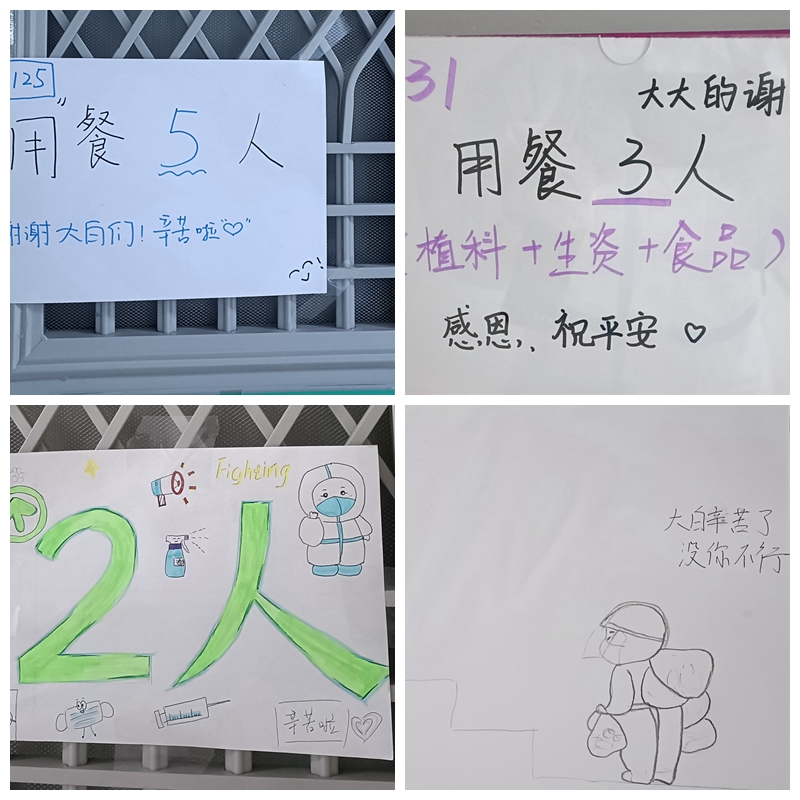 125
用餐 5 人
谢谢大白们！辛苦啦
31
大大的谢
用餐 3 人
（植科+生资+食品）
感恩，祝平安
Fighting
2人
辛苦啦
大白辛苦了
没你不行